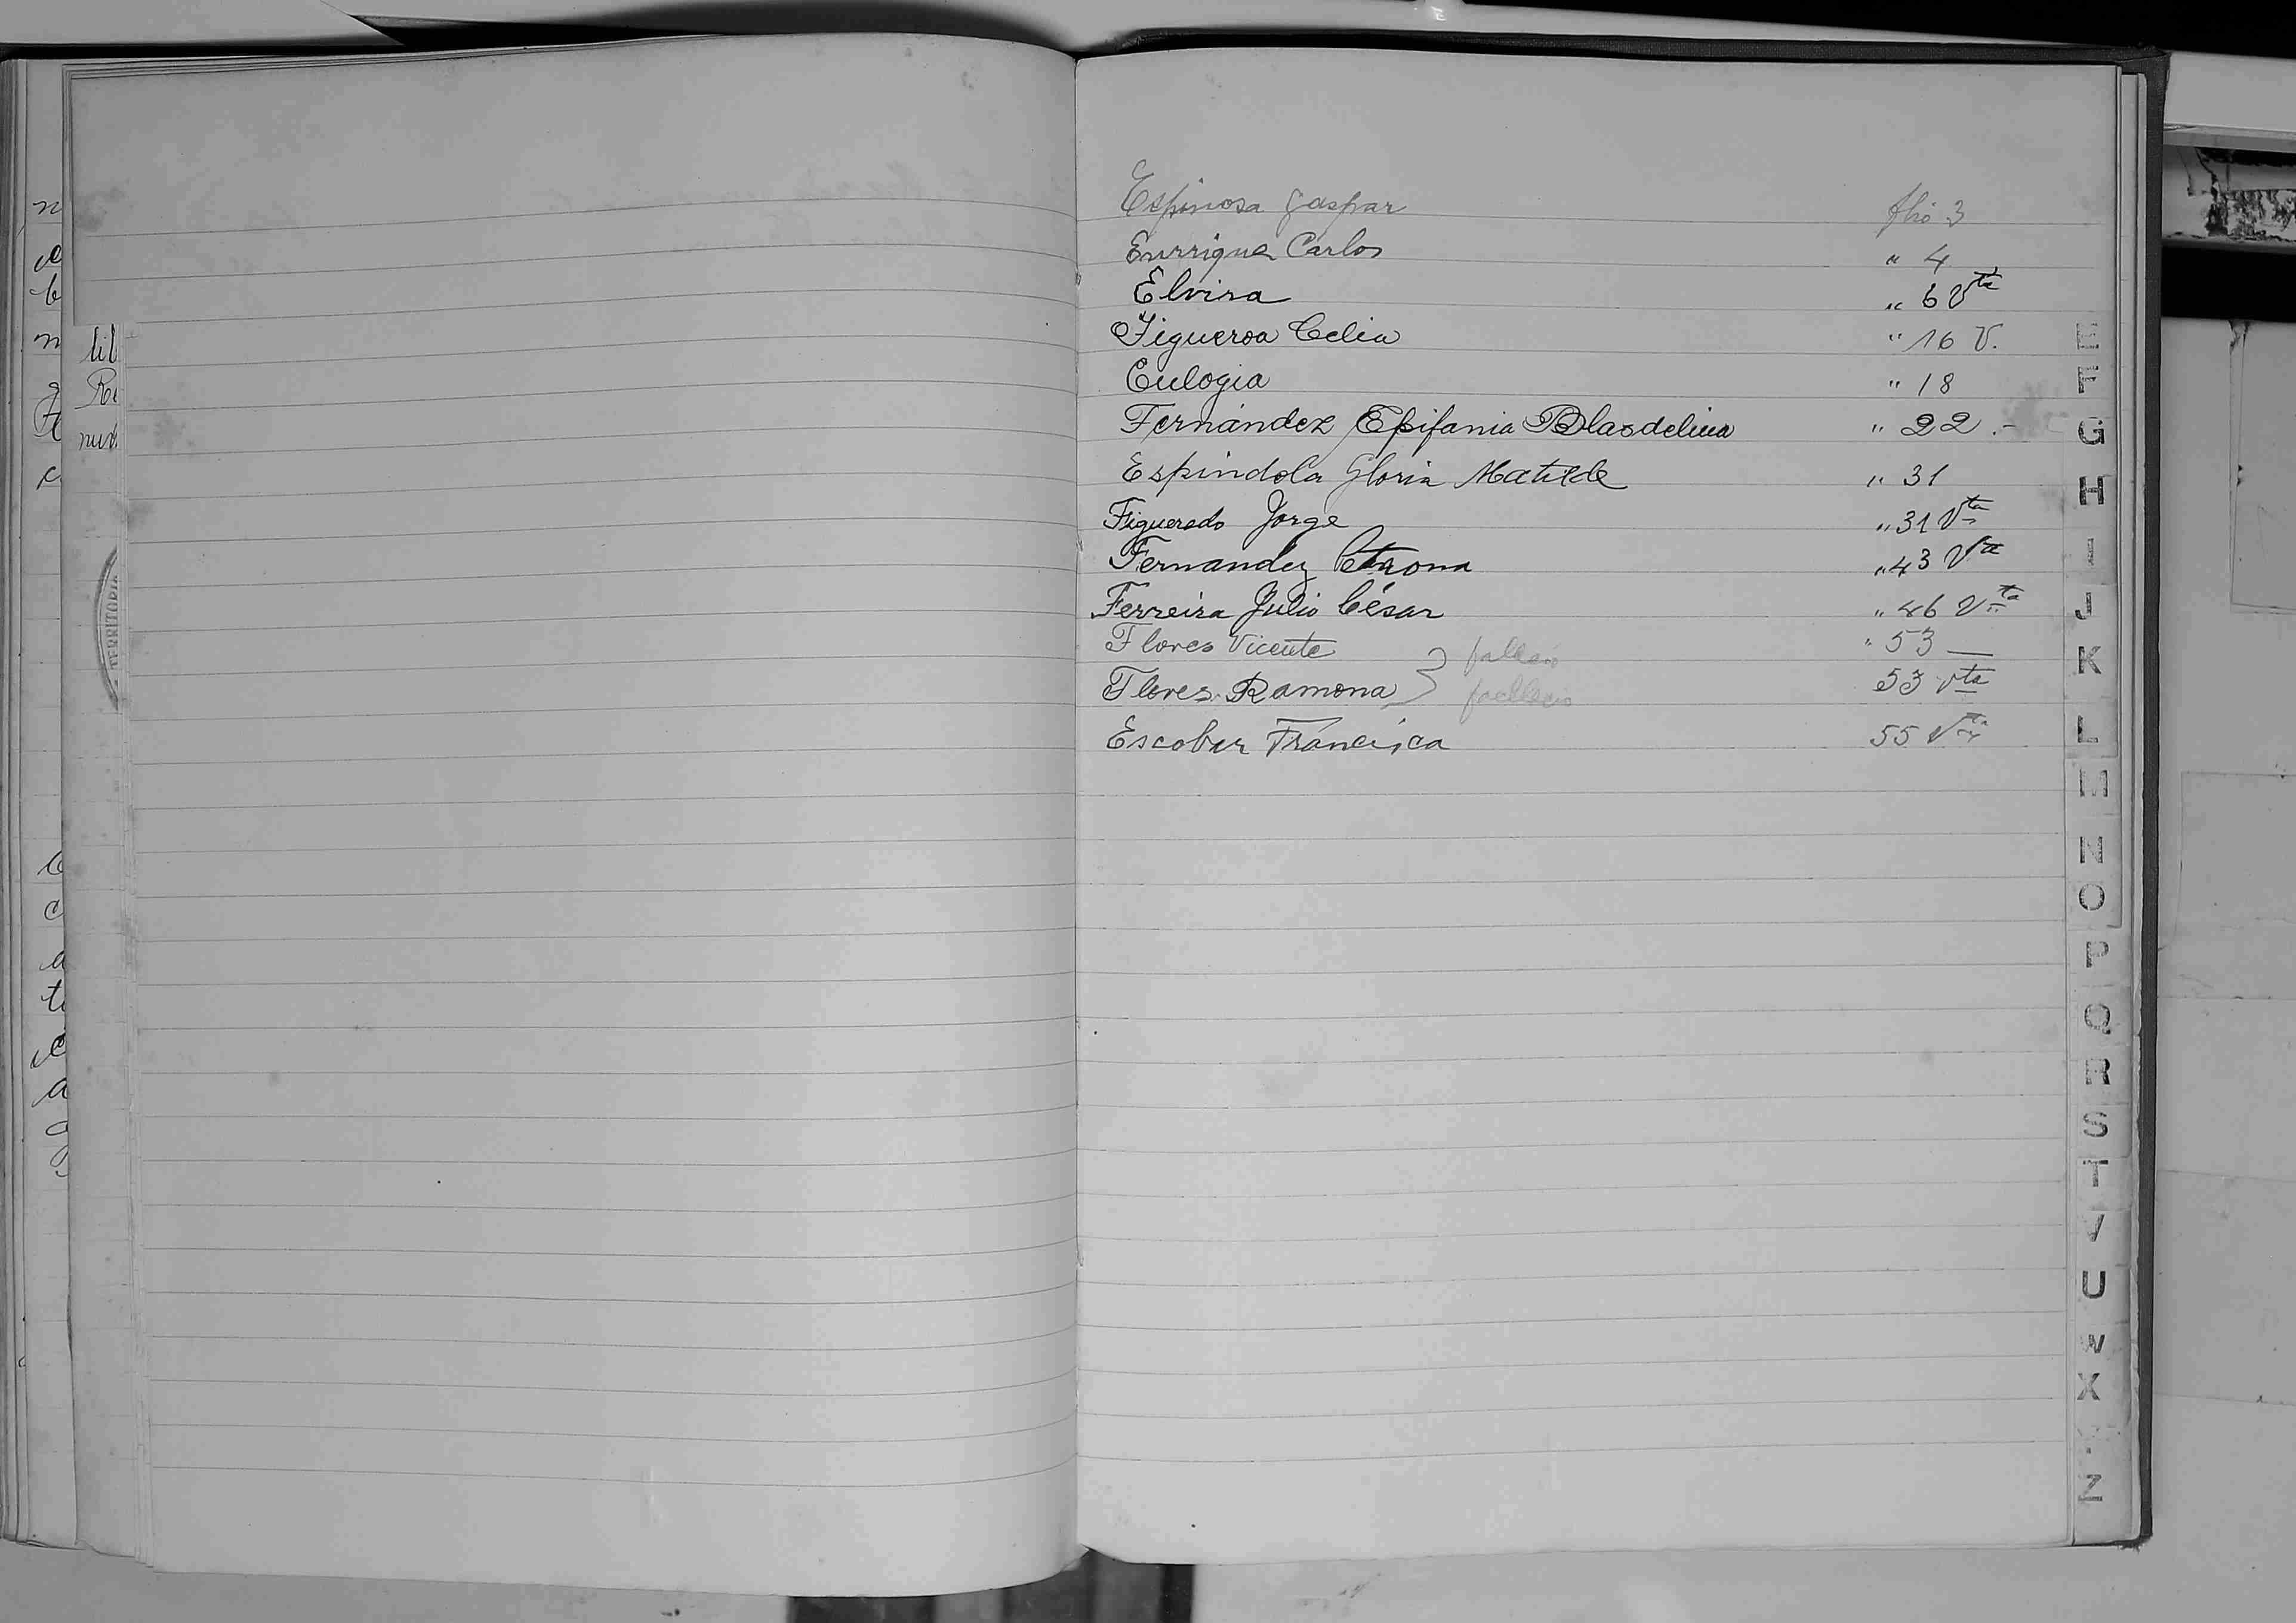 Espinosa Gaspar flio 3
Enrriquez Carlos " 4
Elvira " 6 Vta
Figueroa Celia " 16 V.
Eulogia " 18
Fernández Epifania Blasdelina " 22.-
Espíndola Gloria Matilde " 31
Figueredo Jorge " 31 Vta
Fernandez Petrona " 43 Vta
Ferreira Julio César " 46 Vta
Flores Vicente } falleció " 53 —
Flores Ramona } fallecio 53 vta
Escobar Francisca 55 Vta
E
F
G
H
I
J
K
L
M
N
O
P
Q
R
S
T
V
U
W
X
Z
TERRITORIA